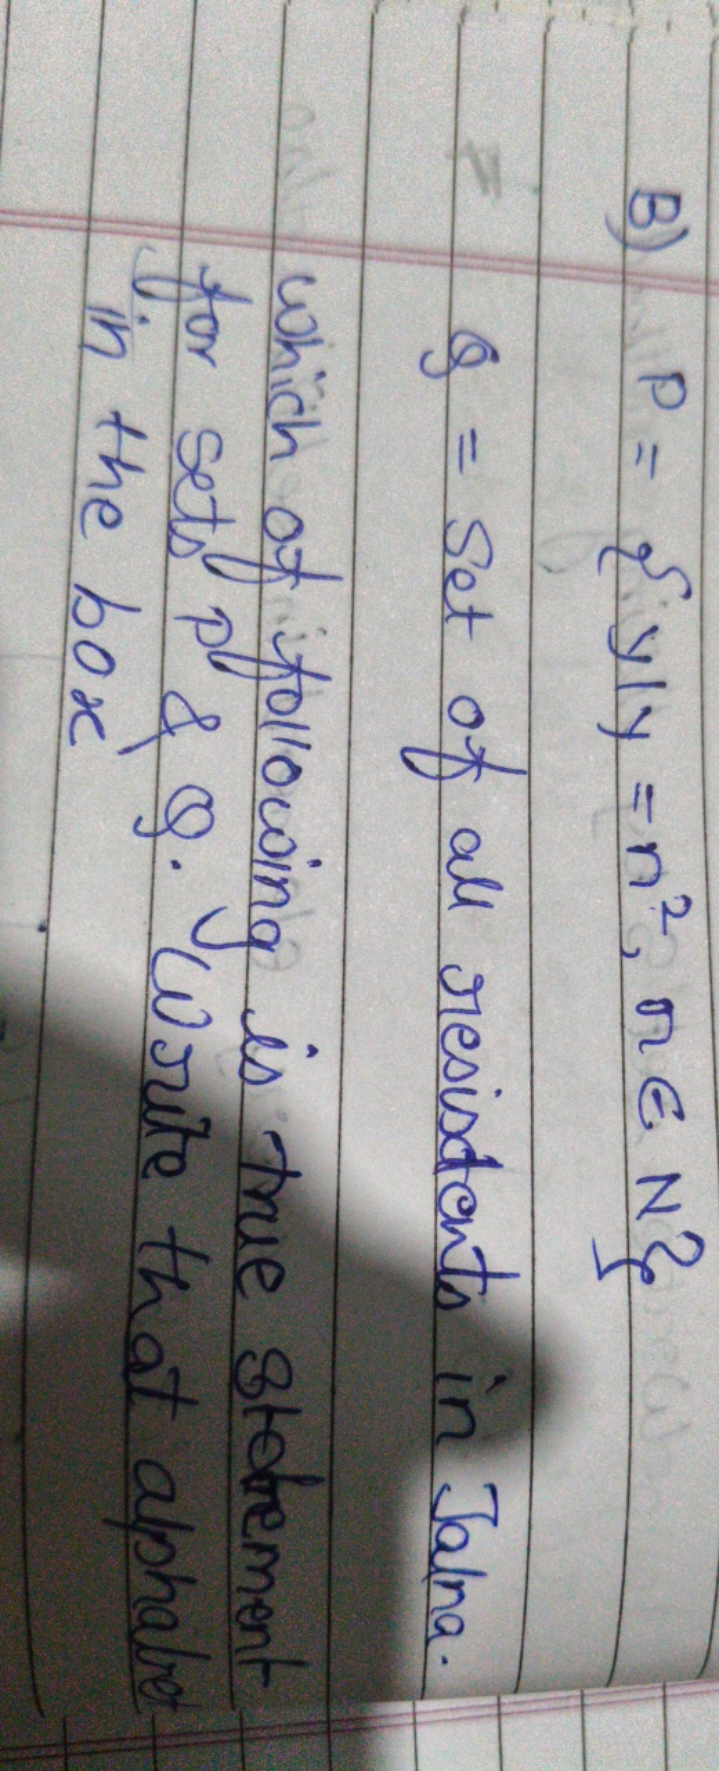 B) P = {y|y = n², n ∈ N}
Q = Set of all resistants in Jalna.
which of following is true statement
for sets P & Q. Write that alphabet
in the box